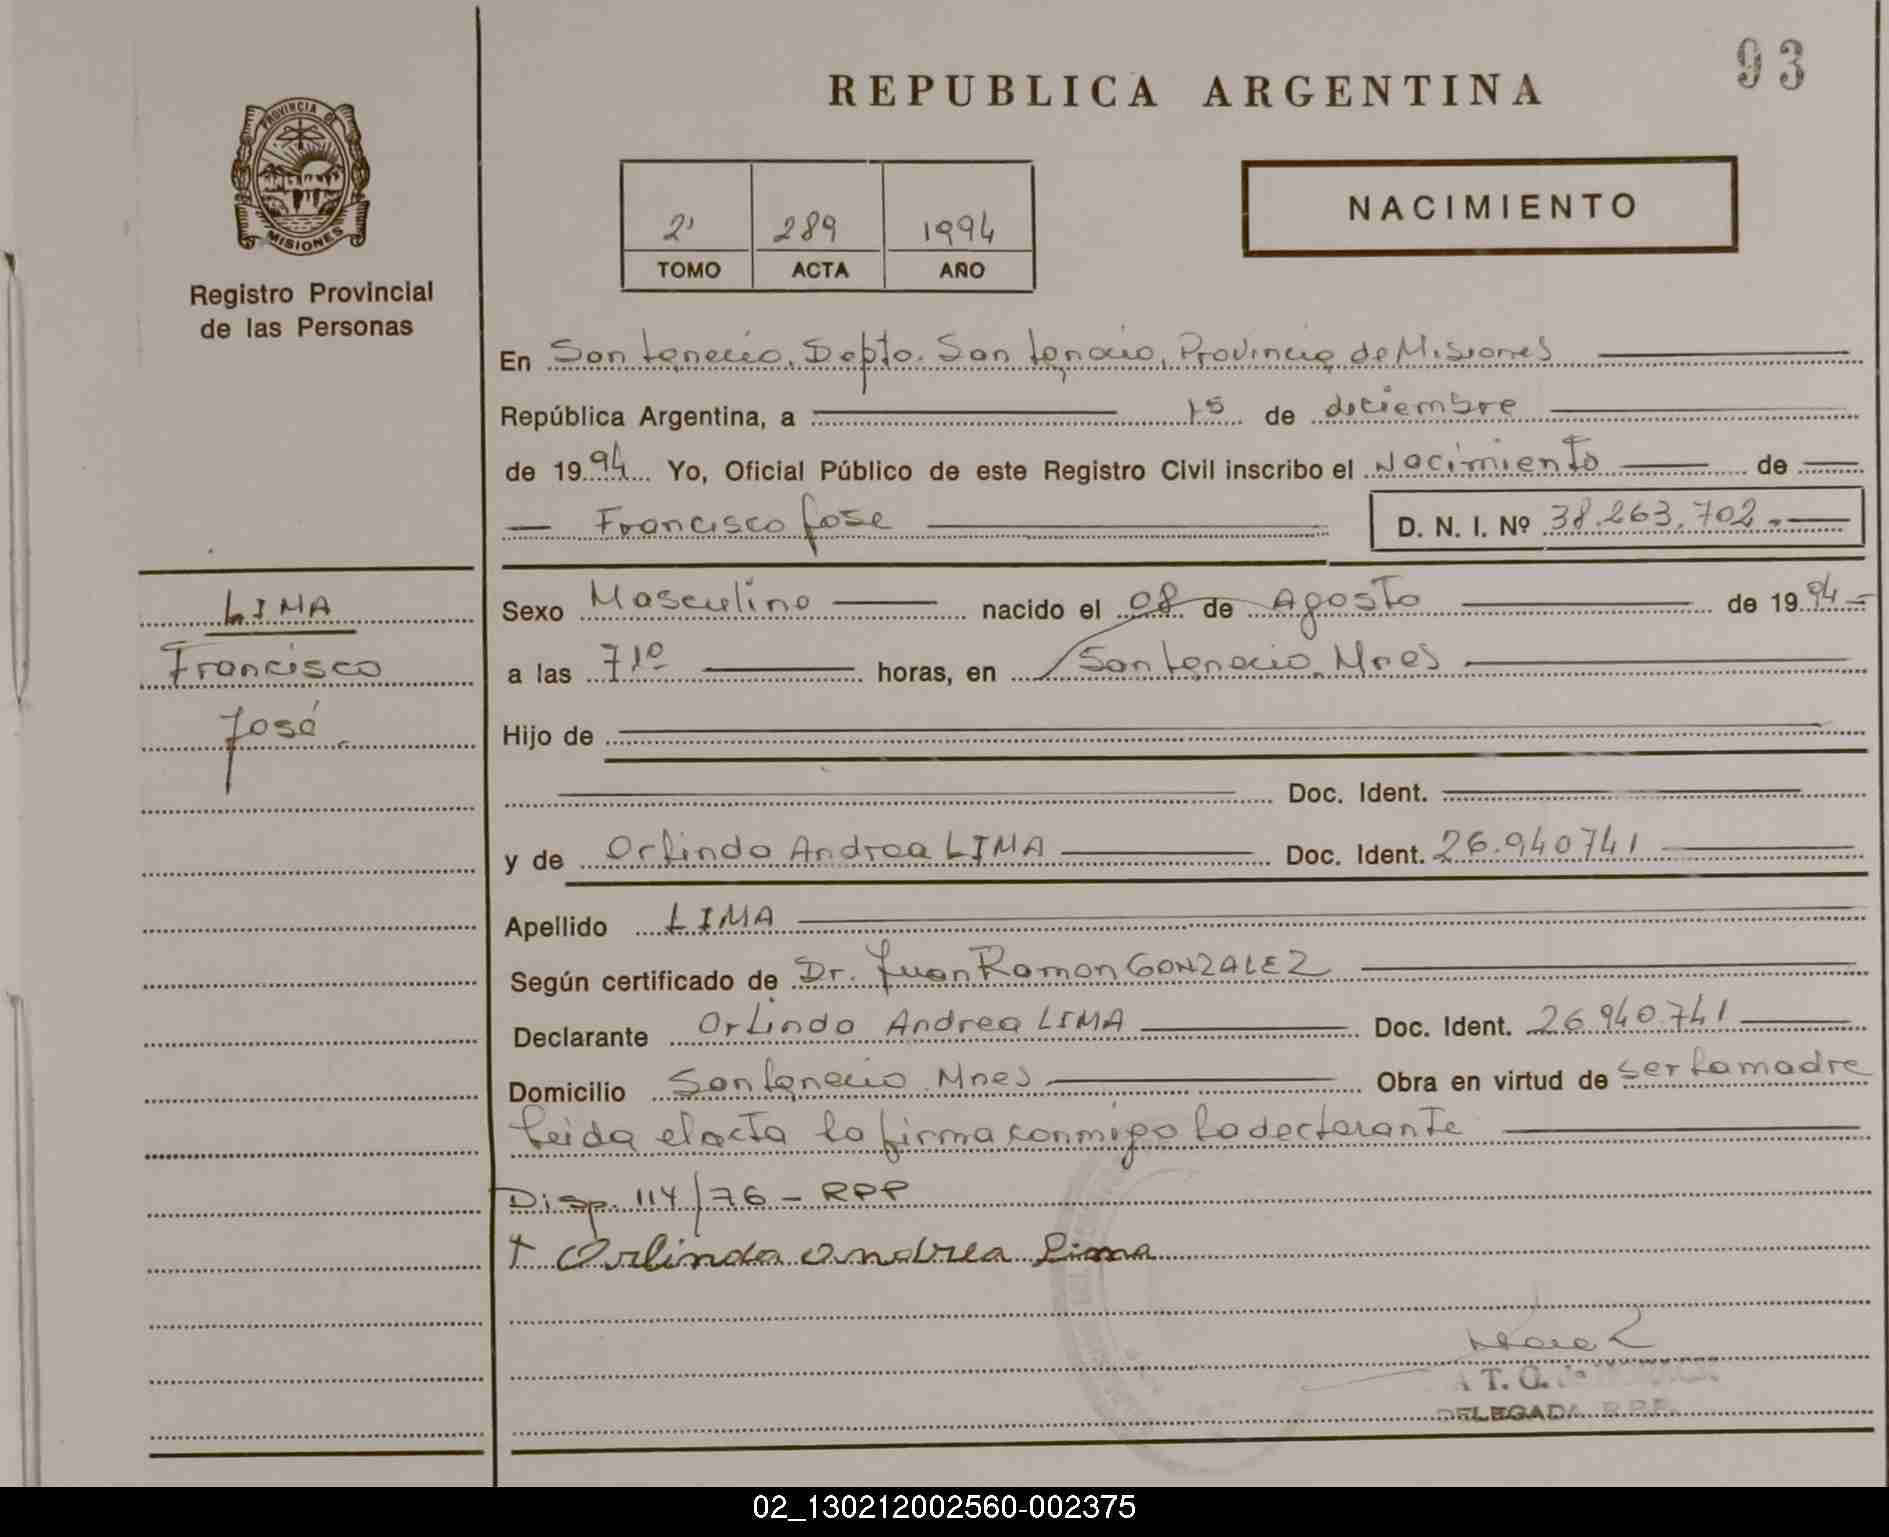 93
REPUBLICA ARGENTINA
PROVINCIA DE
MISIONES
Registro Provincial
de las Personas
2' 289 1994
TOMO ACTA AÑO
NACIMIENTO
En San Ignacio, Depto. San Ignacio, Provincia de Misiones
República Argentina, a 15 de diciembre
de 1994 Yo, Oficial Público de este Registro Civil inscribo el Nacimiento de
Francisco Jose D. N. I. Nº 38.263.702.-
LIMA
Francisco
José
Sexo Masculino nacido el 08 de Agosto de 1994-
a las 7 10 horas, en San Ignacio Mnes
Hijo de
Doc. Ident.
y de Orlinda Andrea LIMA Doc. Ident. 26.940741
Apellido LIMA
Según certificado de Dr. Juan Ramon GONZALEZ
Declarante Orlinda Andrea LIMA Doc. Ident. 26.940.741
Domicilio San Ignacio Mnes Obra en virtud de ser la madre
leida el acta la firma conmigo la declarante
Disp. 114/76 - RPP
+ Orlinda andrea Lima
DELEGADA R.P.P.
02_130212002560-002375